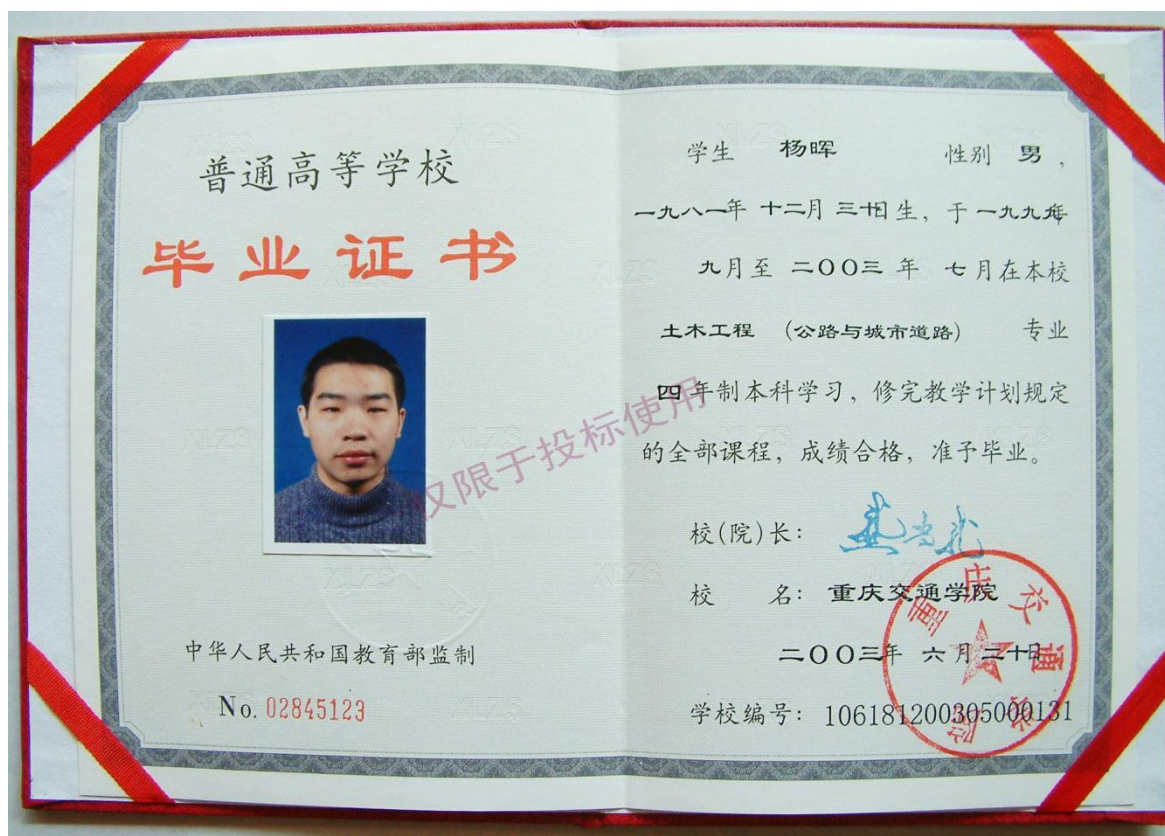 普通高等学校
毕业证书
中华人民共和国教育部监制
No. 02845123
学生 杨晖 性别 男，
一九八一年 十二月 三十日生，于一九九九年
九月至 二〇〇三 年 七月在本校
土木工程 (公路与城市道路) 专业
四年制本科学习，修完教学计划规定
的全部课程，成绩合格，准予毕业。
校(院)长：
校 名：重庆交通学院
二〇〇三年 六月二十日
学校编号：106181200305000131
仅限于投标使用
重庆交通学院